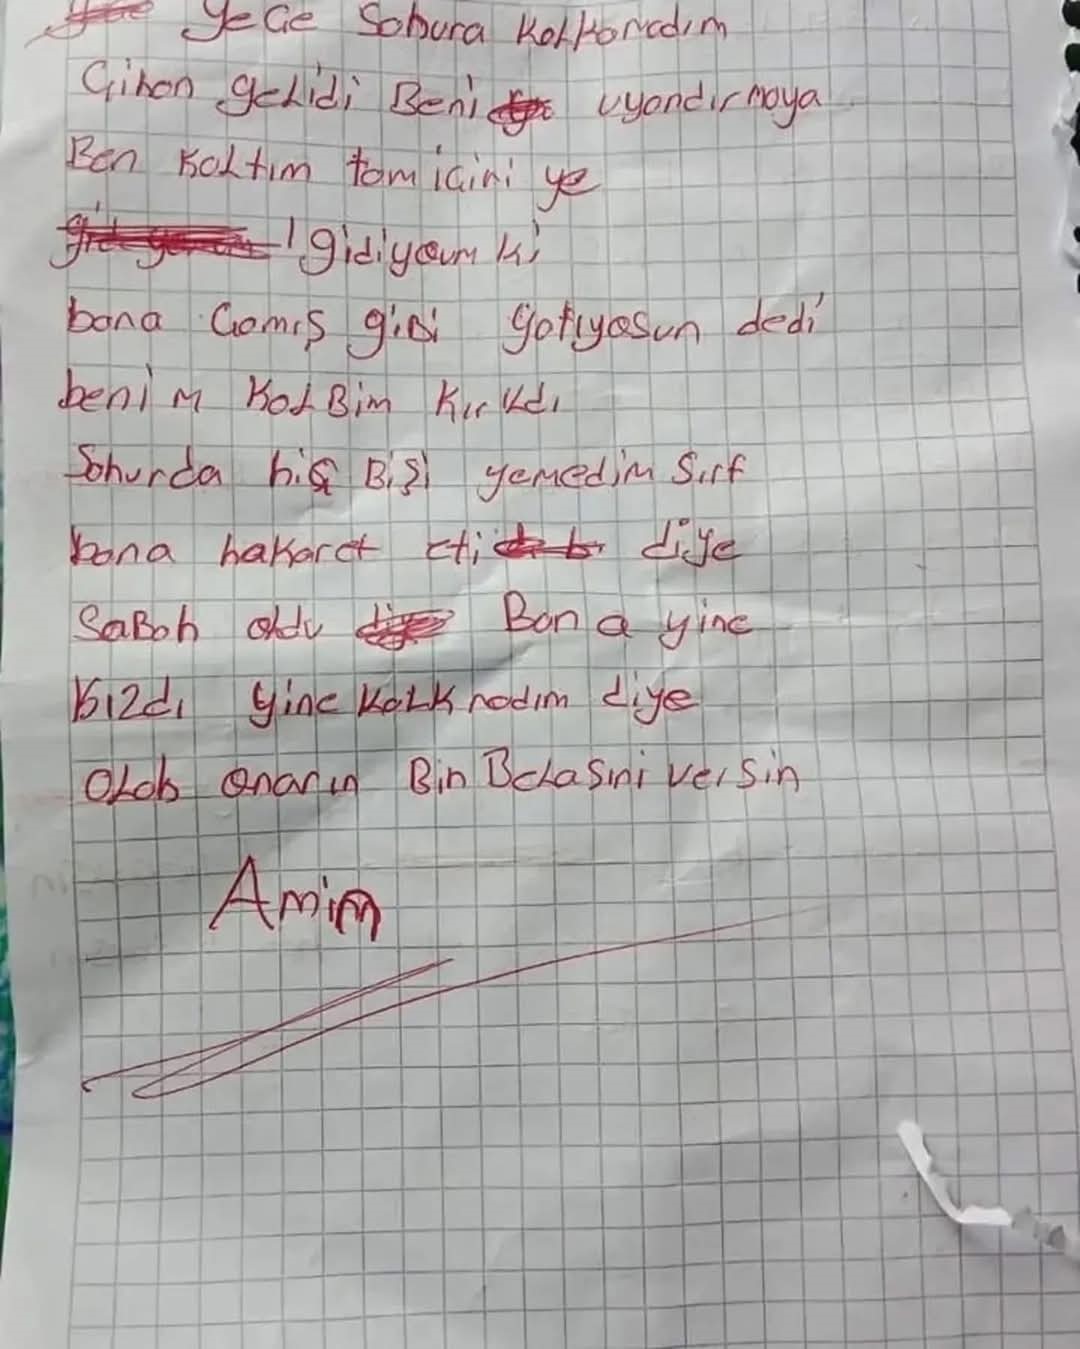 gece Sahura kalkamadım
Cihan gelidi Beni uyandırmaya
Ben kaltım tam içini ye
gidiyoum ki
bana Camış gibi yatıyosun dedi
benim kalBim kırkdı
Sahurda hiç Bişi yemedim Sırf
bana hakaret eti diye
SaBah oldu Bana yine
kızdı yine kalkmadım diye
Olah onarın Bin Belasıni versin
Amim